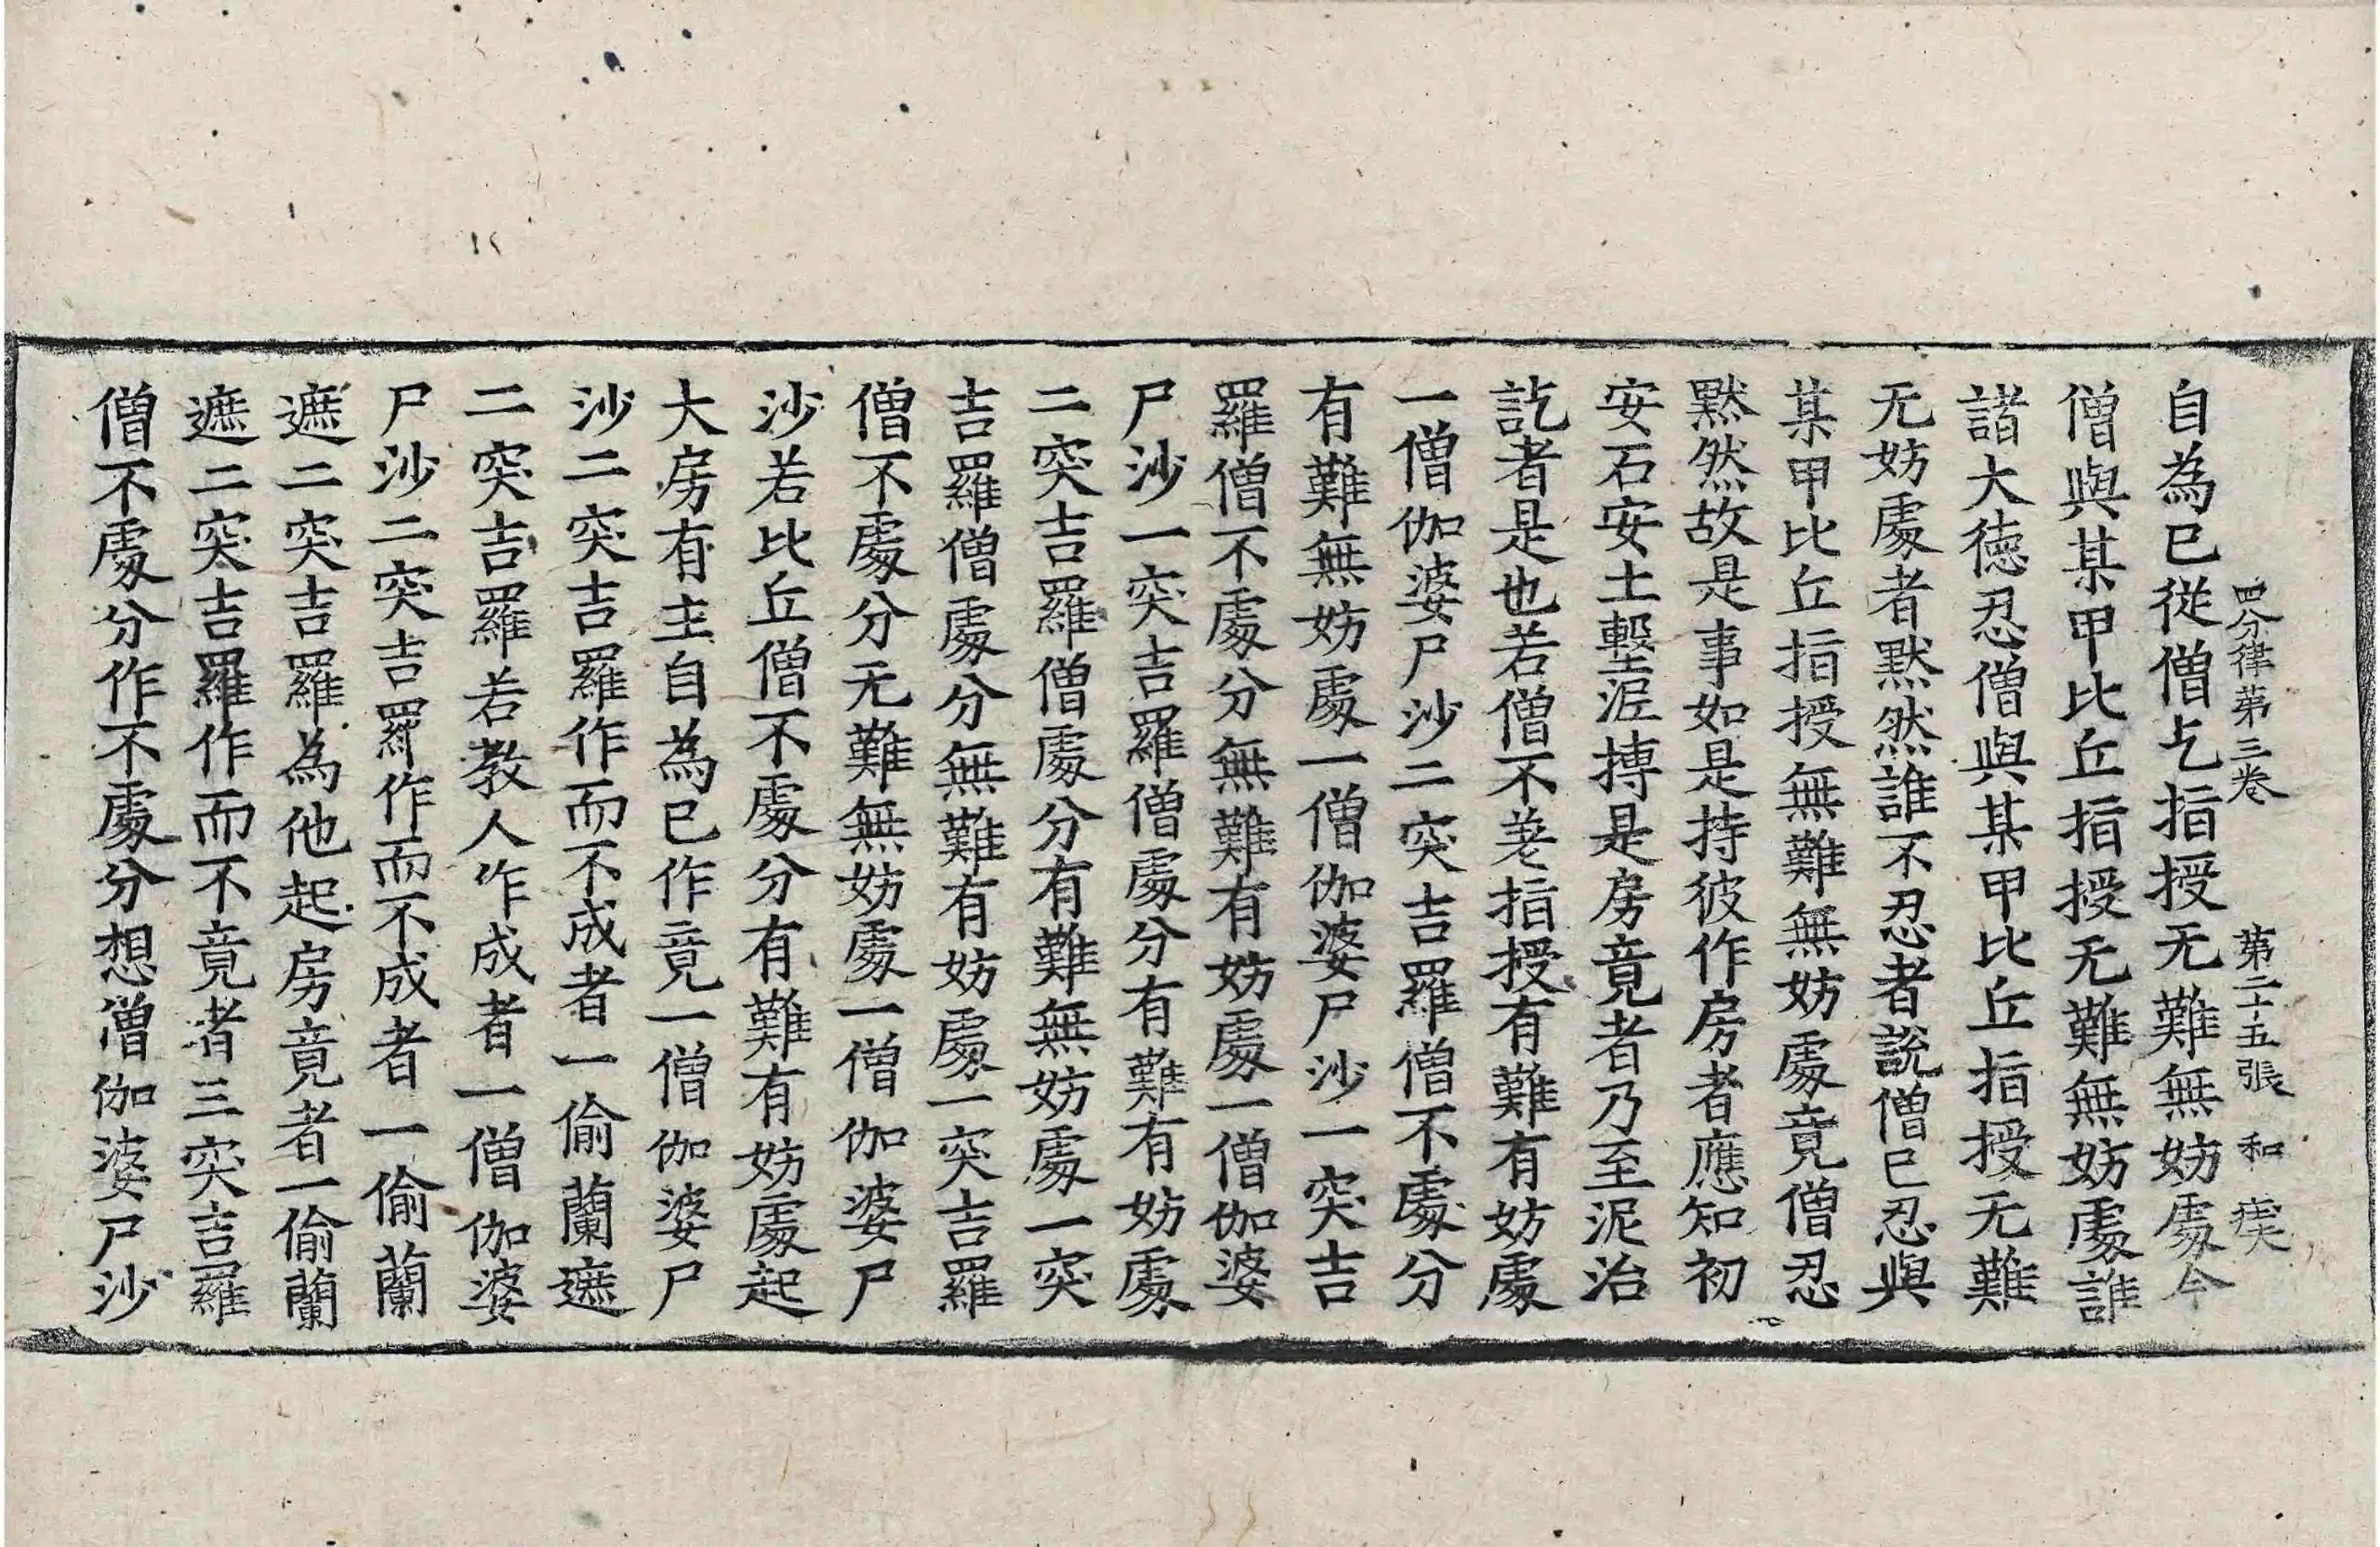 四分律第三卷　第二十五張　和
自為已從僧乞指授无難無妨處今
僧與某甲比丘指授无難無妨處誰
諸大德忍僧與某甲比丘指授无難
无妨處者默然誰不忍者說僧已忍與
某甲比丘指授無難無妨處竟僧忍
默然故是事如是持彼作房者應知初
安石安土墼泥摶是房竟者乃至泥治
訖者是也若僧不差指授有難有妨處
一僧伽婆尸沙二突吉羅僧不處分
有難無妨處一僧伽婆尸沙一突吉
羅僧不處分無難有妨處一僧伽婆
尸沙一突吉羅僧處分有難有妨處
二突吉羅僧處分有難無妨處一突
吉羅僧處分無難有妨處一突吉羅
僧不處分无難無妨處一僧伽婆尸
沙若比丘僧不處分有難有妨處起
大房有主自為已作竟一僧伽婆尸
沙二突吉羅作而不成者一偷蘭遮
二突吉羅若教人作成者一僧伽婆
尸沙二突吉羅作而不成者一偷蘭
遮二突吉羅為他起房竟者一偷蘭
遮二突吉羅作而不竟者三突吉羅
僧不處分作不處分想僧伽婆尸沙